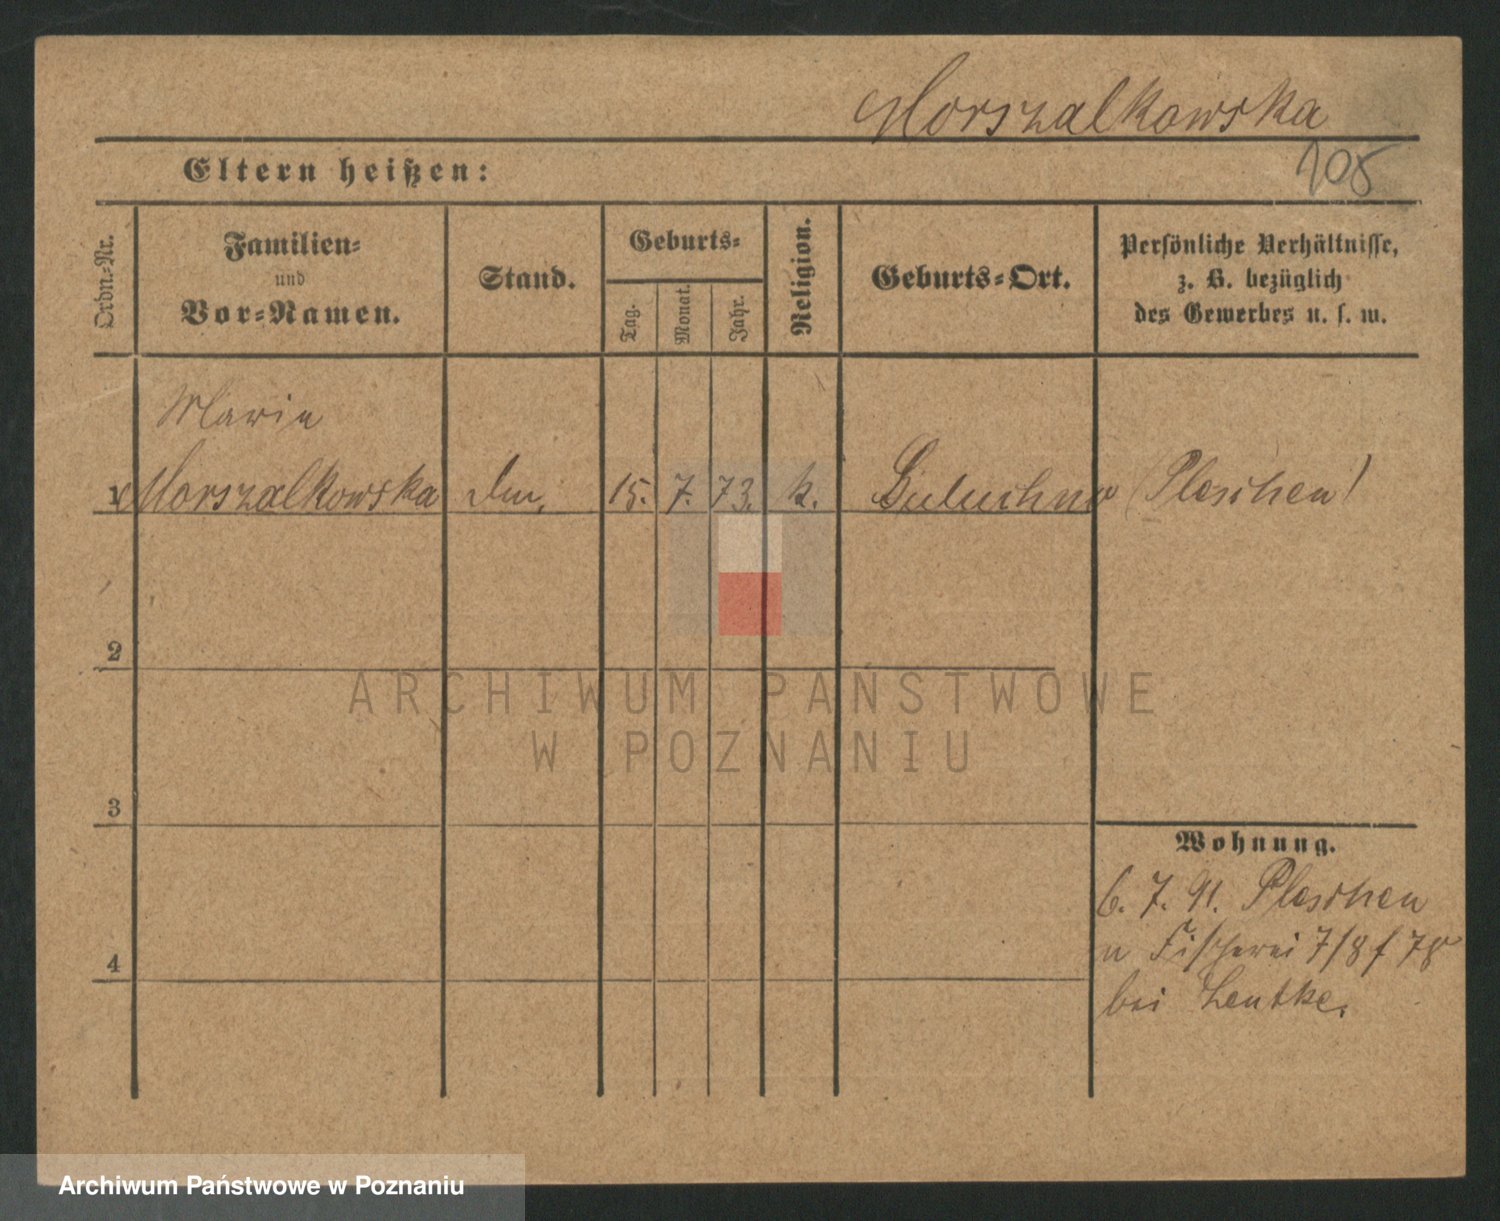 Morszalkowska
108
Eltern heißen:
Ordn.-Nr.
Familien-
und
Vor-Namen.
Stand.
Geburts-
Tag.
Monat.
Jahr.
Religion.
Geburts-Ort.
Persönliche Verhältnisse,
z. B. bezüglich
des Gewerbes u. s. w.
Marie
1 Morszalkowska 15. 7. 73. k. (Pleschen)
2
3
4
Wohnung.
6. 7. 91. Pleschen
n Fischerei 7/8 f 78
bei Lentke.
ARCHIWUM PAŃSTWOWE
W POZNANIU
Archiwum Państwowe w Poznaniu